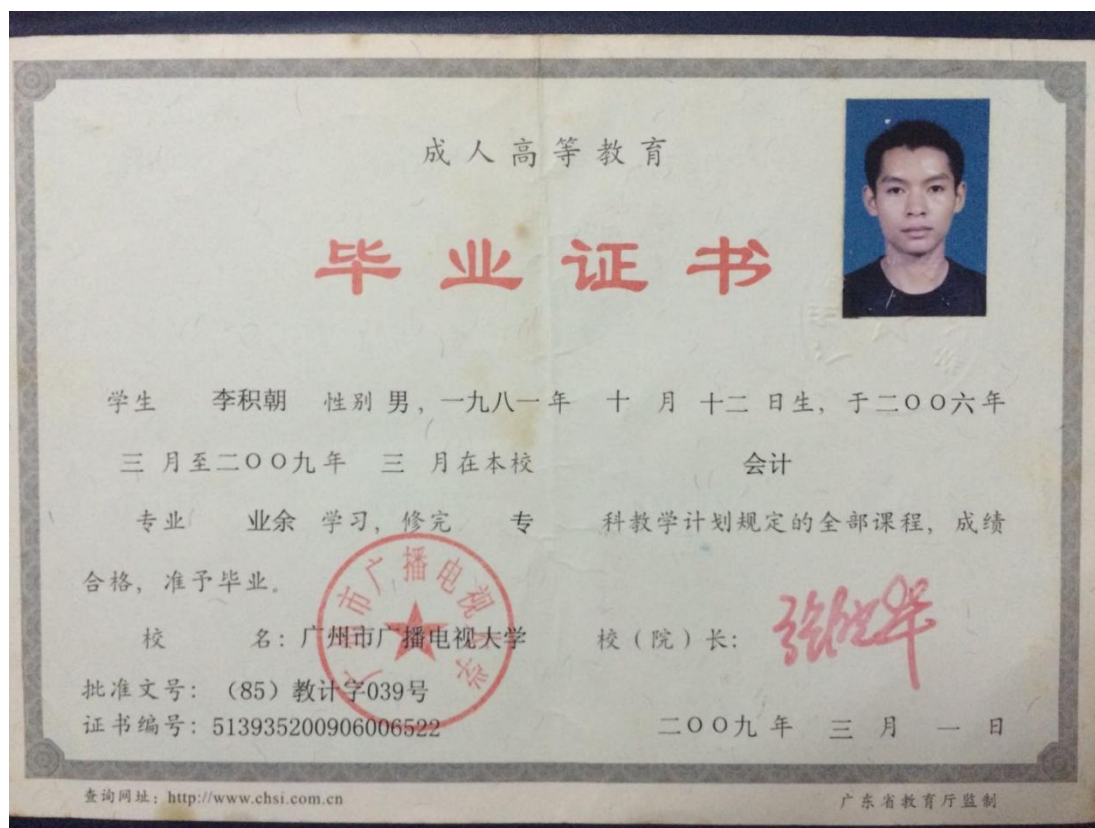 成人高等教育
毕业证书
学生 李积朝 性别 男，一九八一年 十 月 十二 日生，于二〇〇六年
三 月至二〇〇九年 三 月在本校 会计
专业 业余 学习，修完 专 科教学计划规定的全部课程，成绩
合格，准予毕业。
广州市广播电视大学
校 名：广州市广播电视大学 校（院）长：
批准文号：（85）教计字039号
证书编号：513935200906006522 二〇〇九年 三 月 一 日
查询网址：http://www.chsi.com.cn 广东省教育厅监制